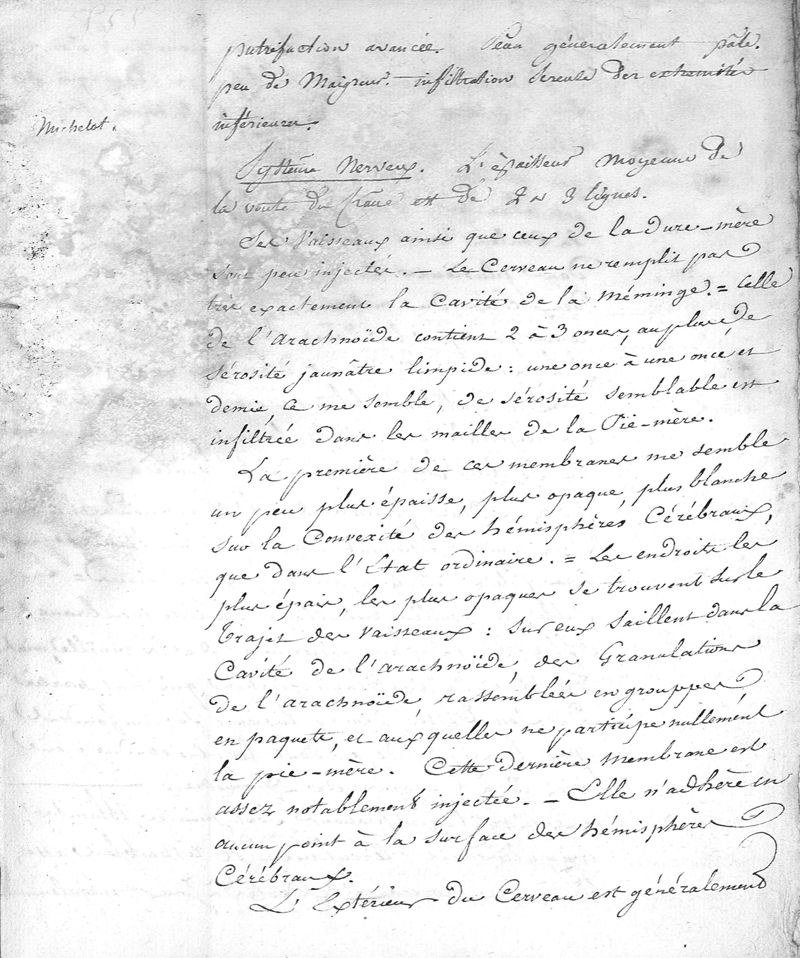 putrefaction avancée. Peau généralement pâle.
peu de Maigreur. infiltration séreuse des extremités
Michelot.
inférieures.
Système Nerveux. L'épaisseur Moyenne de
la voute du Crâne est de 2 à 3 lignes.
Ses Vaisseaux ainsi que ceux de la dure-mère
sont peu injectés. — Le Cerveau ne remplit pas
très exactement la Cavité de la Méninge. = Celle
de l'Arachnoïde contient 2 à 3 onces, au plus, de
sérosité jaunâtre limpide : une once à une once et
demie, ce me semble, de sérosité semblable est
infiltrée dans les mailles de la Pie-mère.
La première de ces membranes me semble
un peu plus épaisse, plus opaque, plus blanche
sur la Convexité des hémisphères Cérébraux,
que dans l'Etat ordinaire. = Les endroits les
plus épais, les plus opaques se trouvent sur le
trajet des vaisseaux : sur eux saillent dans la
Cavité de l'arachnoïde, des Granulations
de l'arachnoïde, rassemblées en grouppes
en paquets, et aux quelles ne participe nullement
la pie-mère. Cette dernière membrane est
assez notablement injectée. — Elle n'adhère en
aucun point à la surface des hémisphères
Cérébraux.
L'Extérieur du Cerveau est généralement